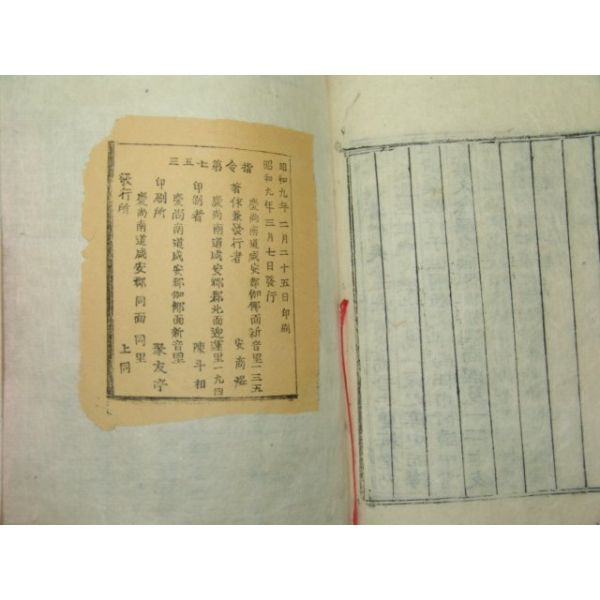 昭和九年二月二十五日印刷
昭和九年三月七日發行
指令第七五三
慶尚南道咸安郡伽倻面新音里一三五
著作兼發行者 安商
慶尚南道咸安郡郡北面迎運里一九四
印刷者 陳斗相
慶尚南道咸安郡伽倻面新音里
印刷所 聚友亭
慶尚南道咸安郡同面同里
發行所 上同